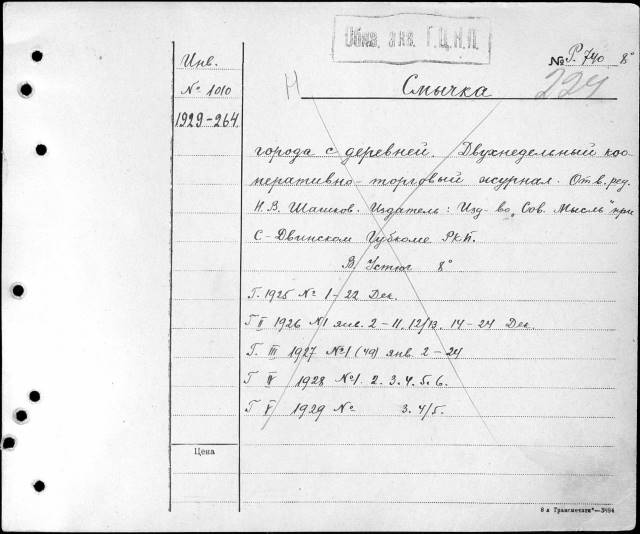 Обяз. экз. Г.Ц.К.П.
№ Р. 740 8°
Инв.
№ 1010
1929-264
Н
Смычка
224
города с деревней. Двухнедельный коо-
перативно-торговый журнал. Отв. ред.
Н. В. Шашков. Издатель: Изд-во „Сов. Мысль" при
С-Двинском Губкоме РКП.
В. Устюг 8°
Г. 1925 № 1-22 Дек.
Г II 1926 № 1 янв. 2-11, 12/13, 14-24 Дек.
Г. III 1927 № 1 (49) янв. 2-24
Г IV 1928 № 1. 2. 3. 4. 5. 6.
Г V 1929 № 3. 4/5.
Цена